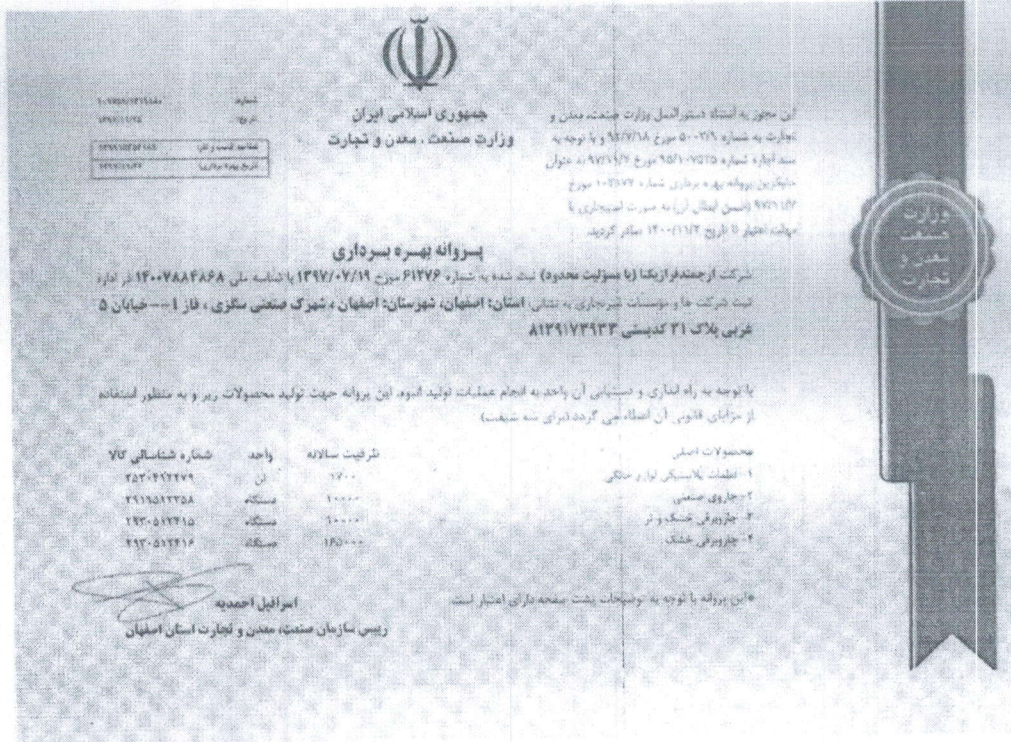 جمهوری اسلامی ایران
وزارت صنعت ، معدن و تجارت
شماره:
تاریخ:
این مجوز به استناد دستورالعمل وزارت صنعت، معدن و
تجارت به شماره مورخ ۹۲/۷/۱۸ و با توجه به
سند اجاره شماره مورخ به عنوان
جایگزین پروانه بهره برداری شماره مورخ
(ضمن ابطال آن) به صورت استیجاری با
مهلت اعتبار تا تاریخ ۱۴۰۰/۱۱/۲ صادر گردید.
پروانه بهره برداری
شرکت ارجمندفرازیکتا (با مسئولیت محدود) ثبت شده به شماره ۶۱۲۷۶ مورخ ۱۳۹۷/۰۷/۱۹ با شناسه ملی ۱۴۰۰۷۸۸۴۸۶۸ در اداره
ثبت شرکت ها و موسسات غیرتجاری به نشانی: استان: اصفهان، شهرستان: اصفهان ، شهرک صنعتی سگزی ، فاز ۱ -- خیابان ۵
غربی پلاک ۳۱ کدپستی ۸۱۳۹۱۷۳۹۳۳
با توجه به راه اندازی و دستیابی آن واحد به انجام عملیات تولید انبوه، این پروانه جهت تولید محصولات زیر و به منظور استفاده
از مزایای قانونی آن اعطاء می گردد (برای سه شیفت)
محصولات اصلی ظرفیت سالانه واحد شماره شناسائی کالا
۱- قطعات پلاستیکی لوازم خانگی ۱۷۰۰ تن
۲- جاروی صنعتی ۱۰۰۰۰ دستگاه
۳- جاروبرقی خشک و تر ۱۰۰۰۰ دستگاه ۲۹۳۰۵۱۲۴۱۵
۴- جاروبرقی خشک ۱۶۵۰۰۰ دستگاه ۲۹۳۰۵۱۲۴۱۶
*این پروانه با توجه به توضیحات پشت صفحه دارای اعتبار است
اسرافیل احمدیه
رییس سازمان صنعت، معدن و تجارت استان اصفهان
وزارت
صنعت
معدن و
تجارت